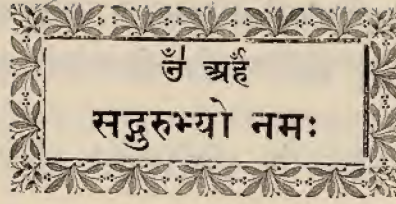 ॐ अर्हँ
सद्गुरुभ्यो नमः